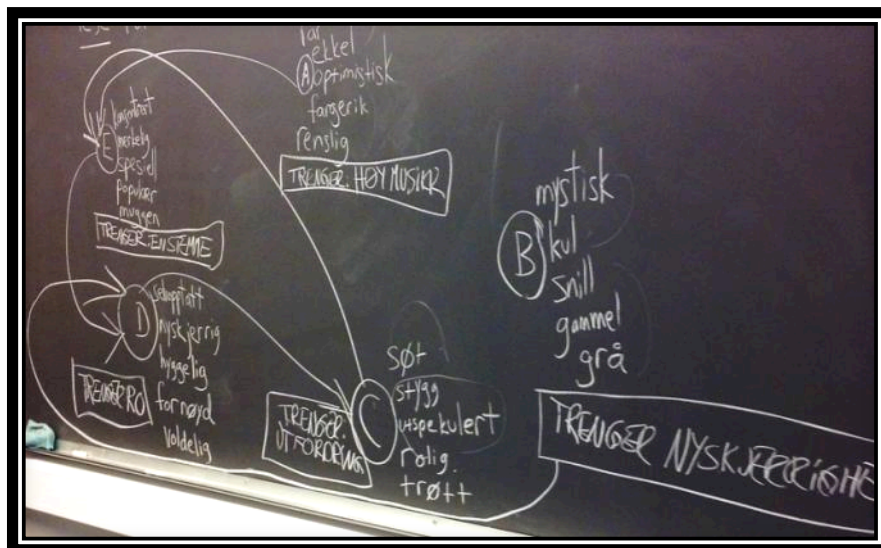 lese for
ekkel
A
optimistisk
fargerik
renslig
TRENGER: HØY MUSIKK
E
merkelig
spesiell
populær
muggen
TRENGER: EN STEMME
D
selvopptatt
nyskjerrig
hyggelig
fornøyd
voldelig
TRENGER RO
C
søt
stygg
utspekulert
rolig.
trøtt
TRENGER:
UTFORDRING
B
mystisk
kul
snill
gammel
grå
TRENGER NYSKJERRIGHE